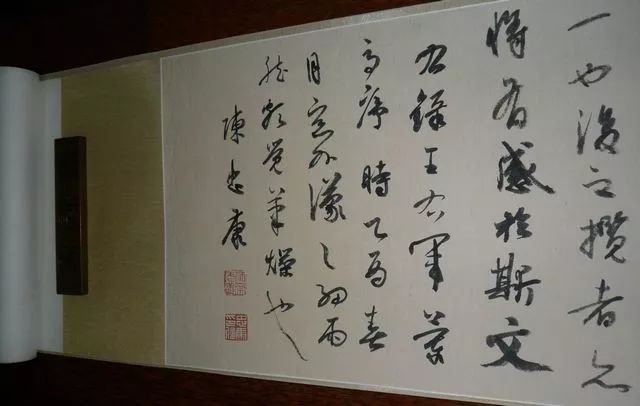 一也後之攬者亦
將有感於斯文
右錄王右軍蘭
亭序時乙酉春
月窗外濛〻細雨
然頗覺筆燥也
陳忠康